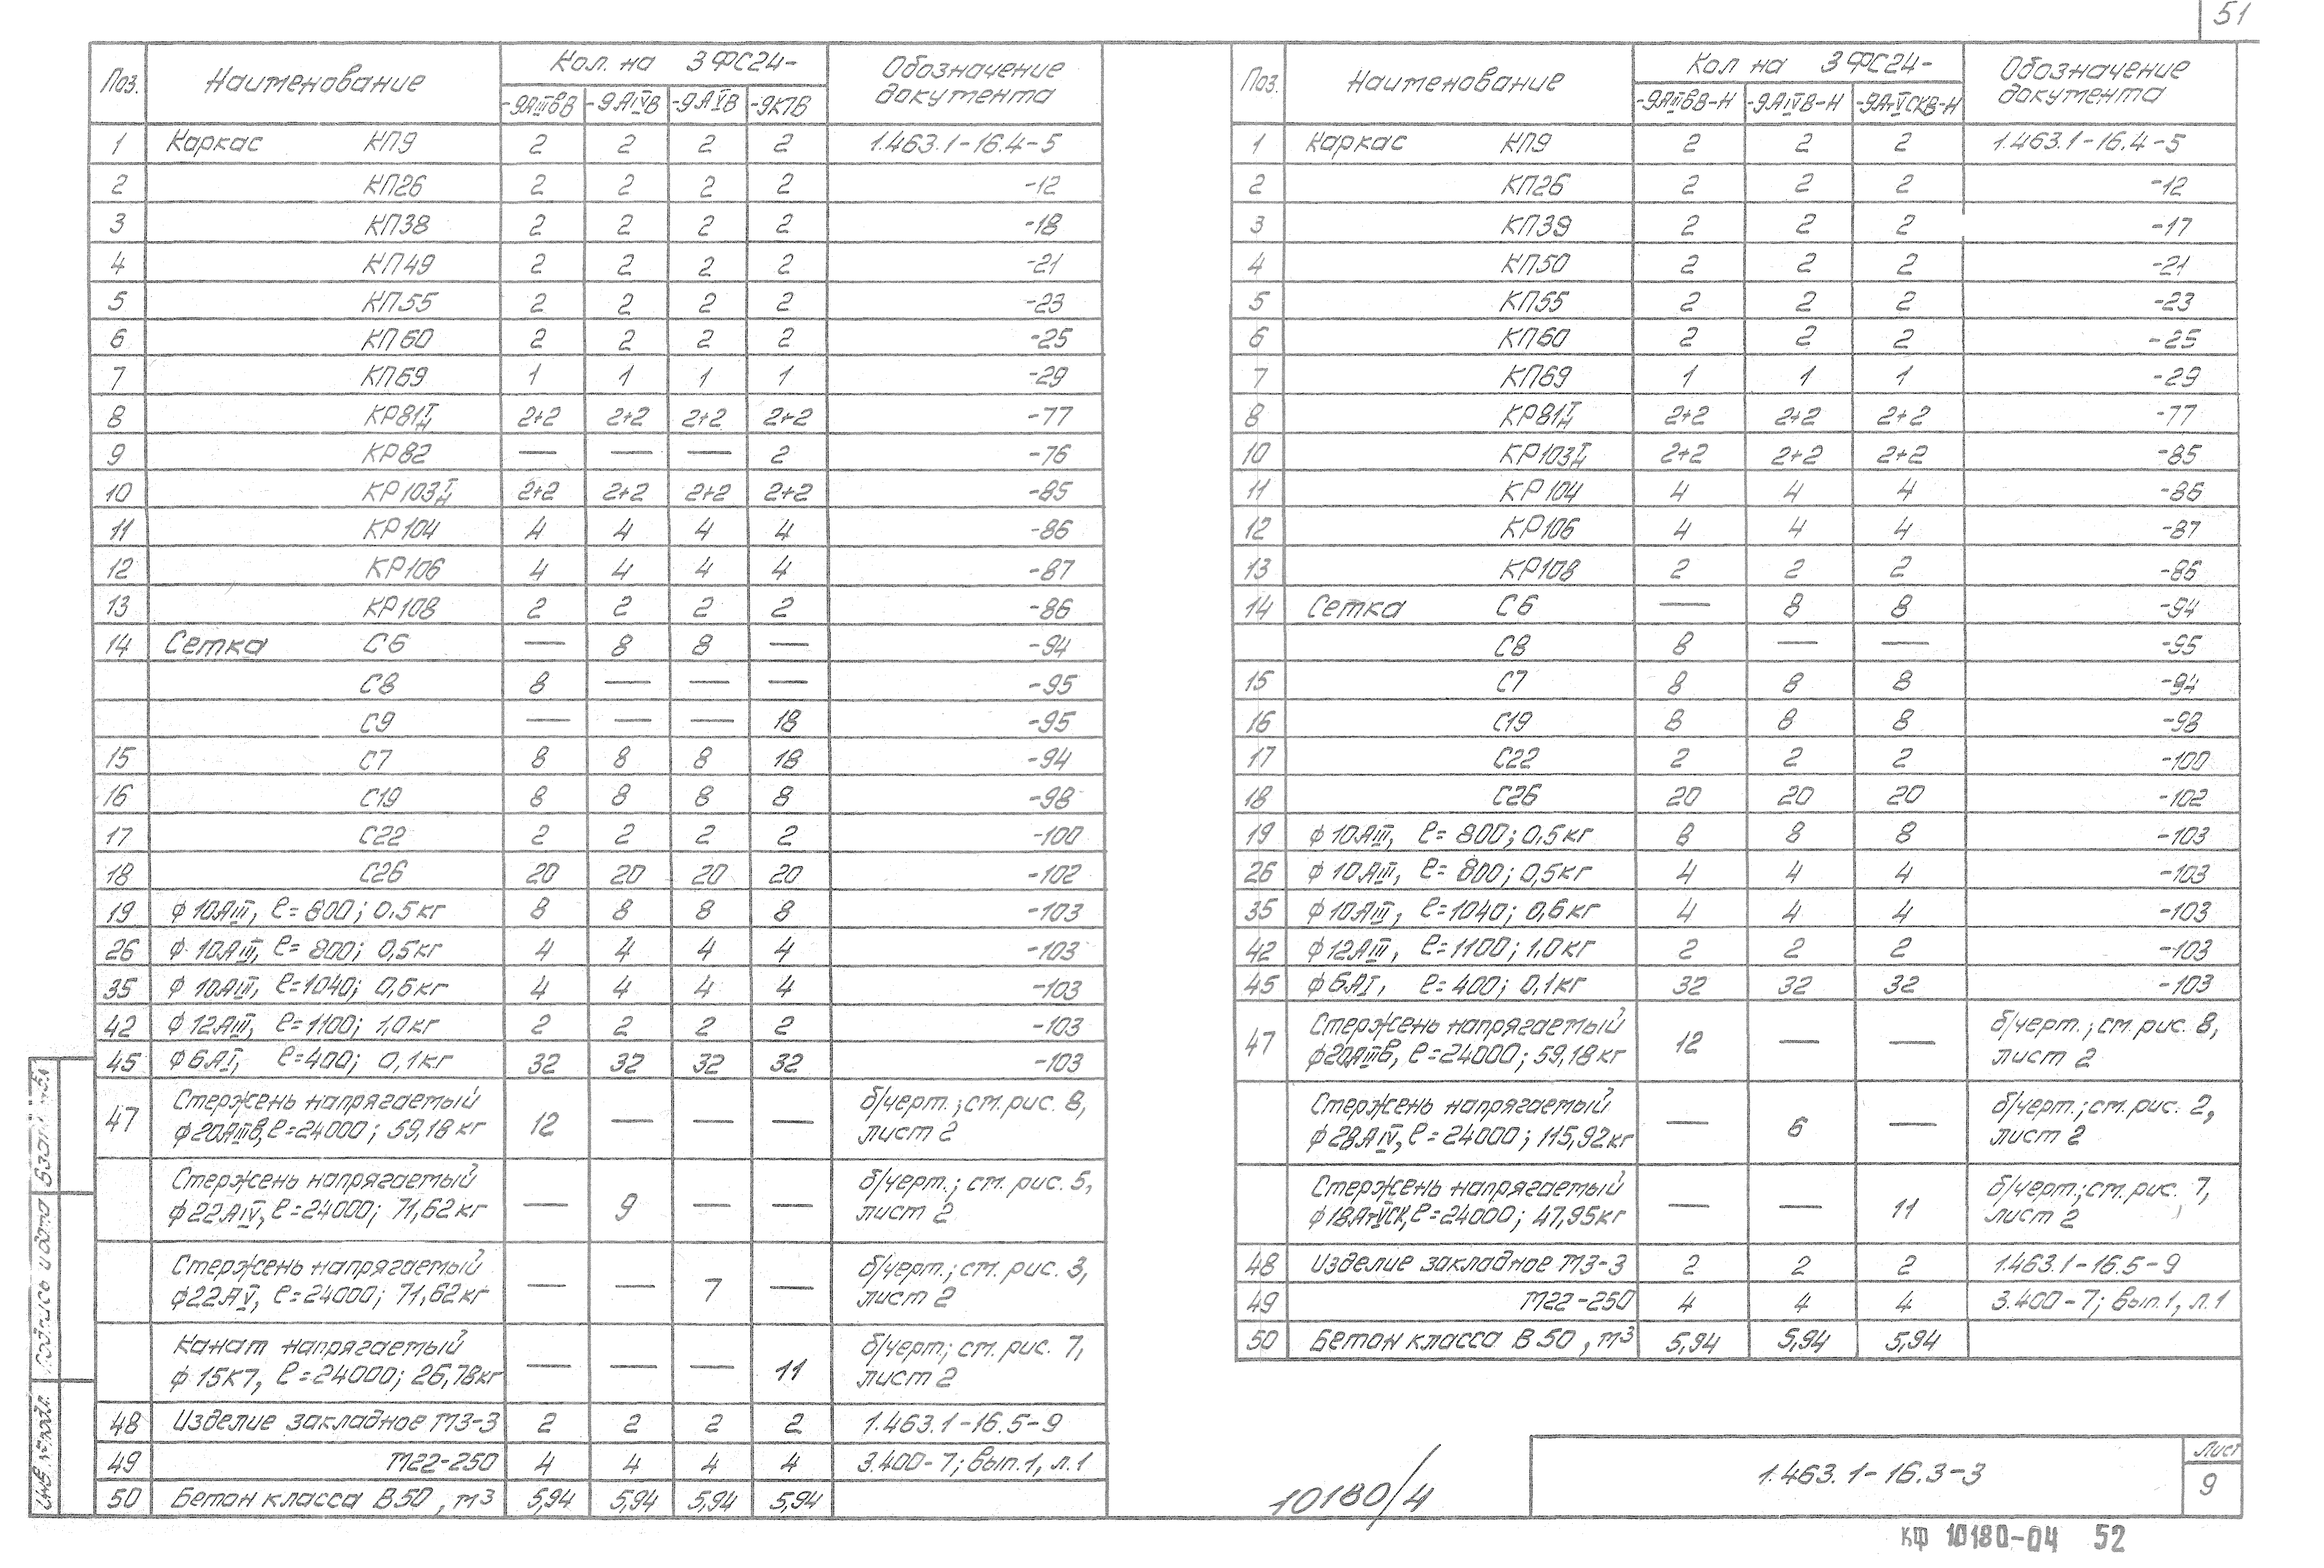 51
Поз. Наименование Кол. на 3ФС24- Обозначение документа
-9АIIIвВ -9АIVВ -9АVВ -9К7В
1 Каркас КП9 2 2 2 2 1.463.1-16.4-5
2 КП26 2 2 2 2 -12
3 КП38 2 2 2 2 -18
4 КП49 2 2 2 2 -21
5 КП55 2 2 2 2 -23
6 КП60 2 2 2 2 -25
7 КП69 1 1 1 1 -29
8 КР81Т/Н 2+2 2+2 2+2 2+2 -77
9 КР82 — — — 2 -76
10 КР103Т/Н 2+2 2+2 2+2 2+2 -85
11 КР104 4 4 4 4 -86
12 КР106 4 4 4 4 -87
13 КР108 2 2 2 2 -86
14 Сетка С6 — 8 8 — -94
С8 8 — — — -95
С9 — — — 18 -95
15 С7 8 8 8 18 -94
16 С19 8 8 8 8 -98
17 С22 2 2 2 2 -100
18 С26 20 20 20 20 -102
19 ф10АIII, ℓ=800; 0.5кг 8 8 8 8 -103
26 ф10АIII, ℓ=800; 0,5кг 4 4 4 4 -103
35 ф10АIII, ℓ=1040; 0,6кг 4 4 4 4 -103
42 ф12АIII, ℓ=1100; 1,0кг 2 2 2 2 -103
45 ф6АI, ℓ=400; 0,1кг 32 32 32 32 -103
47 Стержень напрягаемый б/черт.; см. рис. 8,
ф20АIIIв, ℓ=24000; 59,18кг 12 — — — лист 2
Стержень напрягаемый б/черт.; см. рис. 5,
ф22АIV, ℓ=24000; 71,62кг — 9 — — лист 2
Стержень напрягаемый б/черт.; см. рис. 3,
ф22АV, ℓ=24000; 71,62кг — — 7 — лист 2
Канат напрягаемый б/черт; см. рис. 7,
ф15К7, ℓ=24000; 26,78кг — — — 11 лист 2
48 Изделие закладное М3-3 2 2 2 2 1.463.1-16.5-9
49 М22-250 4 4 4 4 3.400-7; Вып.1, л.1
50 Бетон класса В50, м3 5,94 5,94 5,94 5,94
Поз. Наименование Кол на 3ФС24- Обозначение документа
-9АIIIвВ-Н -9АIVВ-Н -9АтVСКВ-Н
1 Каркас КП9 2 2 2 1.463.1-16.4-5
2 КП26 2 2 2 -12
3 КП39 2 2 2 -17
4 КП50 2 2 2 -21
5 КП55 2 2 2 -23
6 КП60 2 2 2 -25
7 КП69 1 1 1 -29
8 КР81Т/Н 2+2 2+2 2+2 -77
10 КР103Т/Н 2+2 2+2 2+2 -85
11 КР104 4 4 4 -86
12 КР106 4 4 4 -87
13 КР108 2 2 2 -86
14 Сетка С6 — 8 8 -94
С8 8 — — -95
15 С7 8 8 8 -94
16 С19 8 8 8 -98
17 С22 2 2 2 -100
18 С26 20 20 20 -102
19 ф10АIII, ℓ=800; 0,5кг 8 8 8 -103
26 ф10АIII, ℓ=800; 0,5кг 4 4 4 -103
35 ф10АIII, ℓ=1040; 0,6кг 4 4 4 -103
42 ф12АIII, ℓ=1100; 1,0кг 2 2 2 -103
45 ф6АI, ℓ=400; 0,1кг 32 32 32 -103
47 Стержень напрягаемый б/черт.; см. рис. 8,
ф20АIIIв, ℓ=24000; 59,18кг 12 — — лист 2
Стержень напрягаемый б/черт.; см. рис. 2,
ф28АIV, ℓ=24000; 115,92кг — 6 — лист 2
Стержень напрягаемый б/черт.; см. рис. 7,
ф18АтVСК, ℓ=24000; 47,95кг — — 11 лист 2
48 Изделие закладное М3-3 2 2 2 1.463.1-16.5-9
49 М22-250 4 4 4 3.400-7; Вып.1, л.1
50 Бетон класса В50, м3 5,94 5,94 5,94
Инв.№подл. Подпись и дата Взам.
10180/4
1.463.1-16.3-3
Лист
9
КФ 10180-04 52